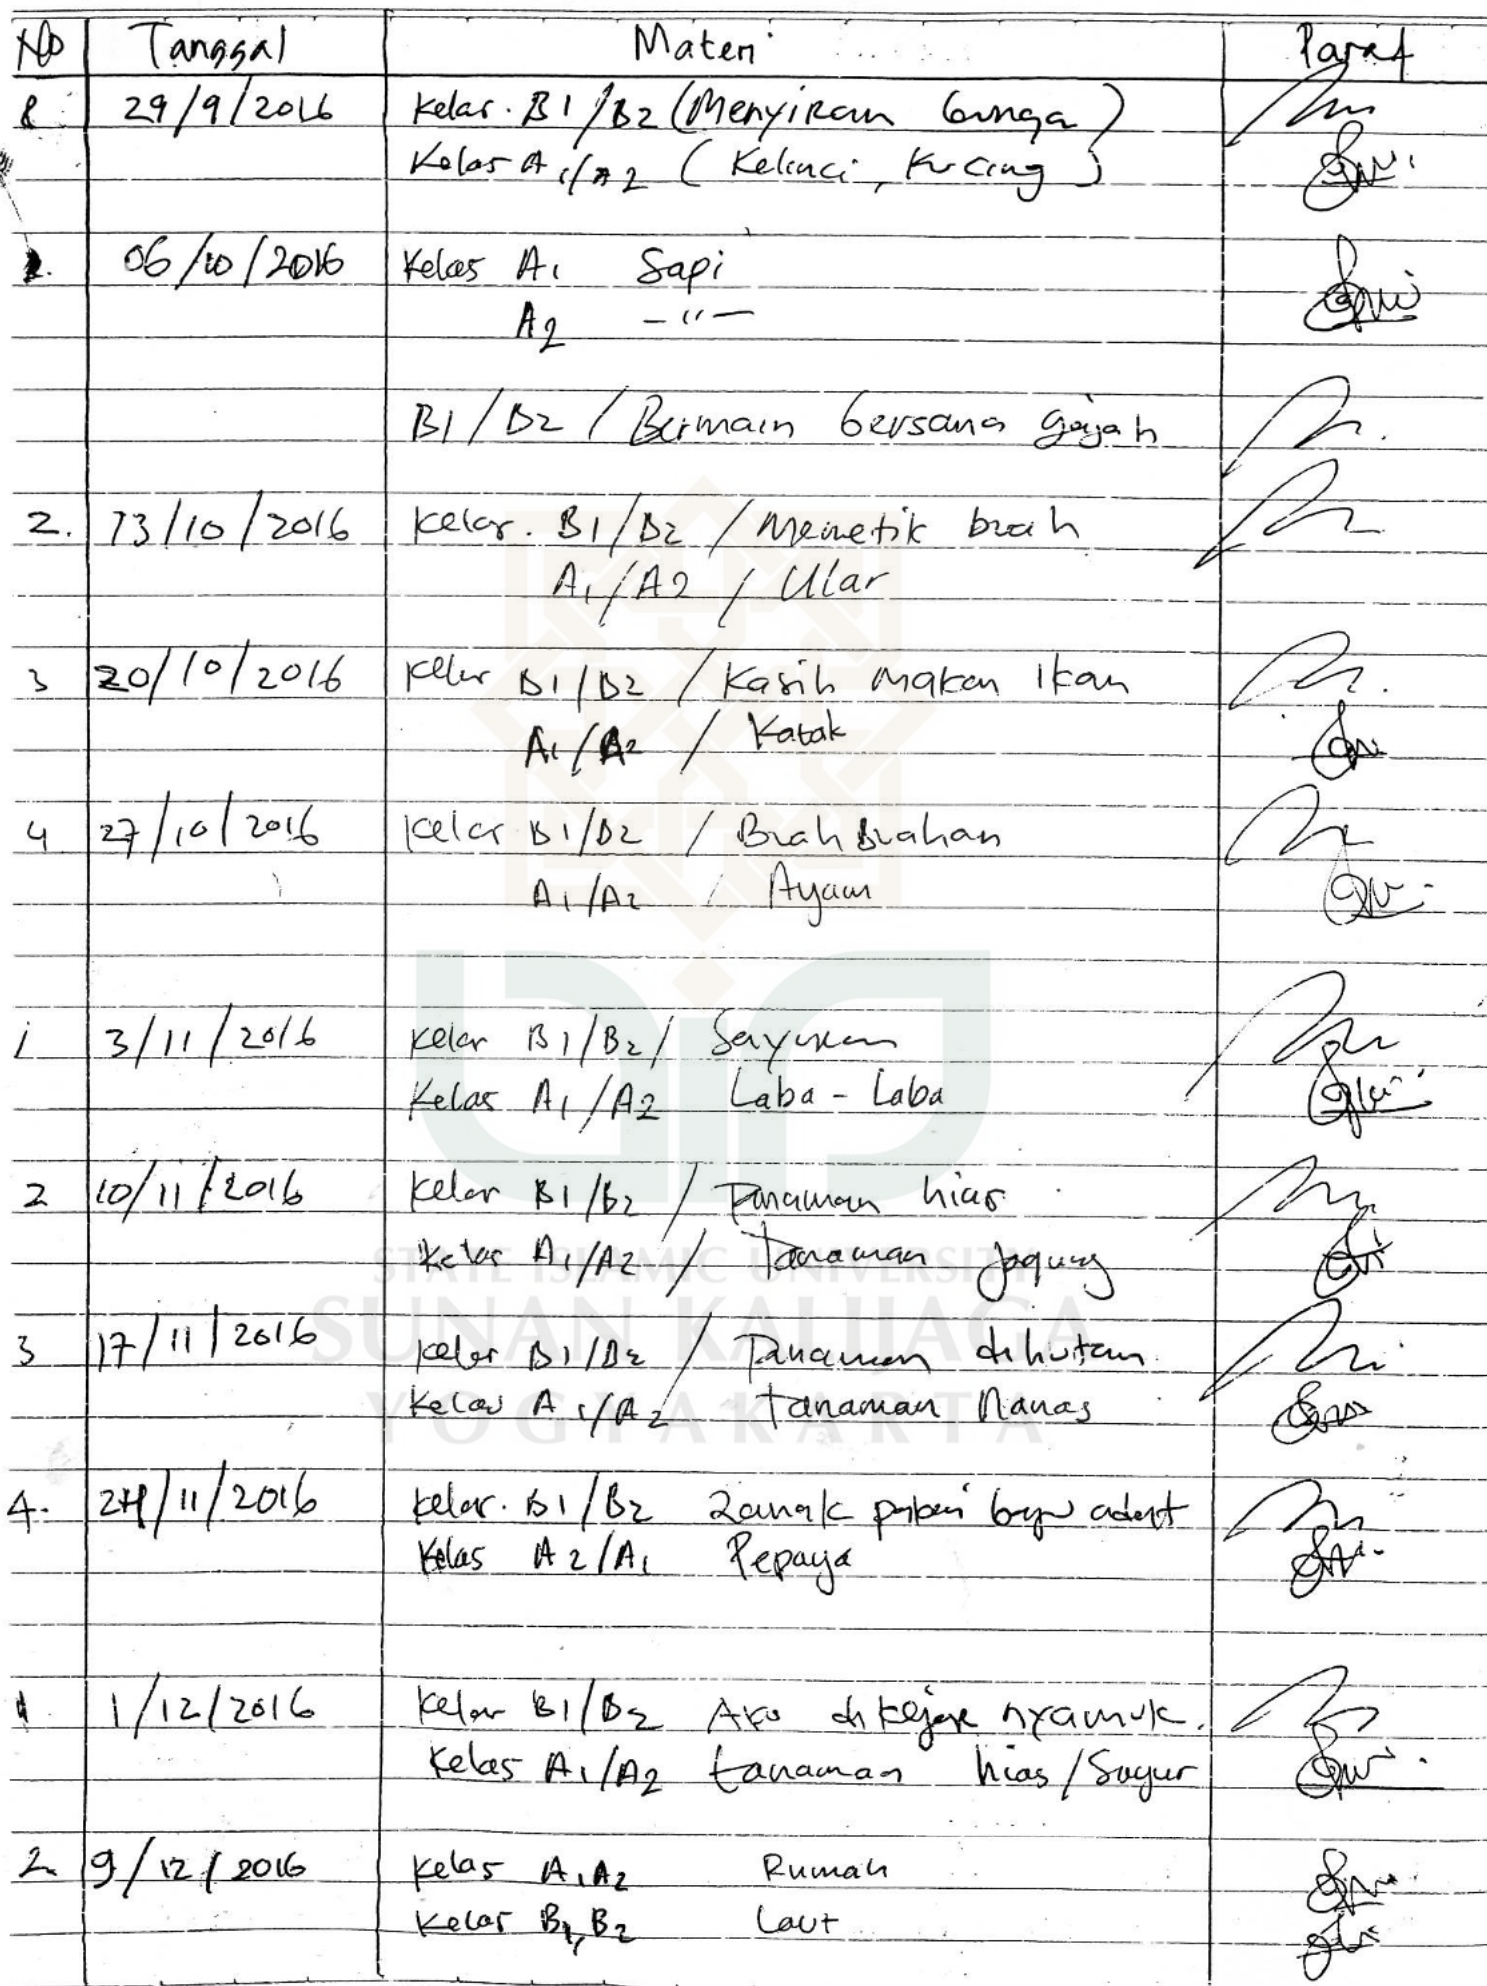 No Tanggal Materi Paraf
8. 29/9/2016 Kelas. B1/B2 (Menyiram bunga)
Kelas A1/A2 (Kelinci, Kucing)
1. 06/10/2016 Kelas A1 Sapi
A2 -"-
B1/B2 / Bermain bersama gajah
2. 13/10/2016 Kelas. B1/B2 / Memetik buah
A1/A2 / Ular
3 20/10/2016 Kelas B1/B2 / Kasih makan Ikan
A1/A2 / Katak
4 27/10/2016 Kelas B1/B2 / Buah Buahan
A1/A2 / Ayam
1 3/11/2016 Kelas B1/B2 / Sayuran
Kelas A1/A2 Laba-Laba
2 10/11/2016 Kelas B1/B2 / Tanaman hias
Kelas A1/A2 / Tanaman Jagung
STATE ISLAMIC UNIVERSITY
SUNAN KALIJAGA
3 17/11/2016 Kelas B1/B2 / Tanaman dihutan
Kelas A1/A2 Tanaman Nanas
YOGYAKARTA
4. 24/11/2016 Kelas. B1/B2 2anak pakai baju adat
Kelas A2/A1 Pepaya
1 1/12/2016 Kelas B1/B2 Aku dikejar nyamuk.
Kelas A1/A2 tanaman hias/Sayur
2 9/12/2016 Kelas A1A2 Rumah
Kelas B1,B2 Laut